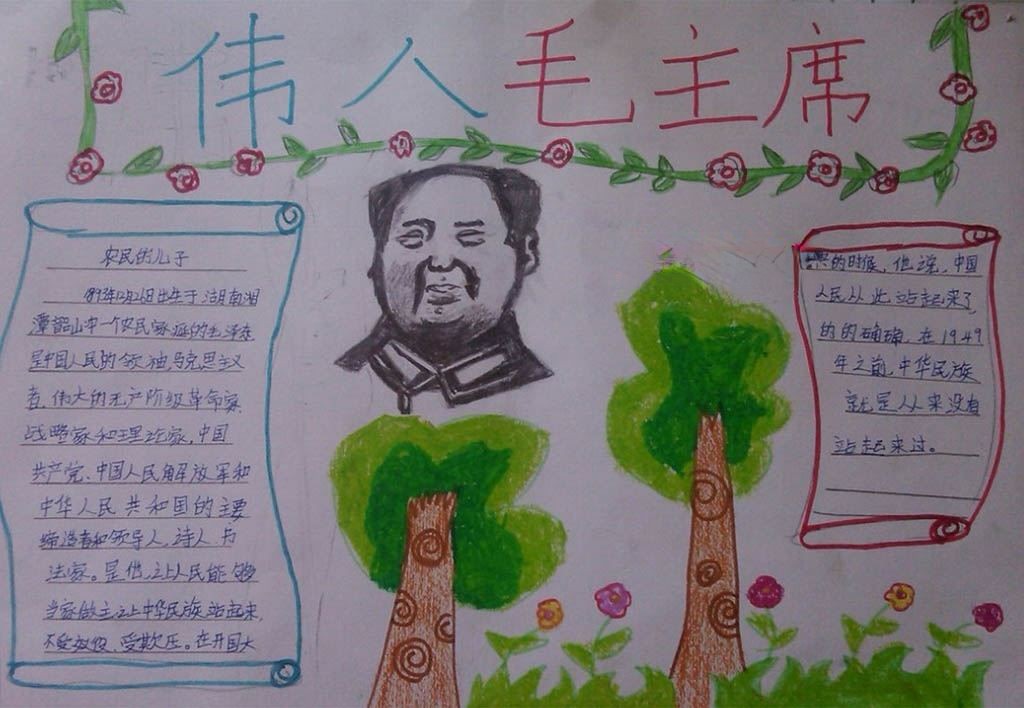 伟人毛主席
农民的儿子
1893年12月26日出生于湖南湘
潭韶山冲一个农民家庭的毛泽东
是中国人民的领袖,马克思主义
者,伟大的无产阶级革命家,
战略家和理论家,中国
共产党、中国人民解放军和
中华人民共和国的主要
缔造者和领导人,诗人,书
法家。是他,让人民能够
当家做主,让中华民族站起来,
不受奴役,受欺压。在开国大
的时候,他说,中国
人民从此站起来了
的的确确,在1949
年之前,中华民族
就是从来没有
站起来过。